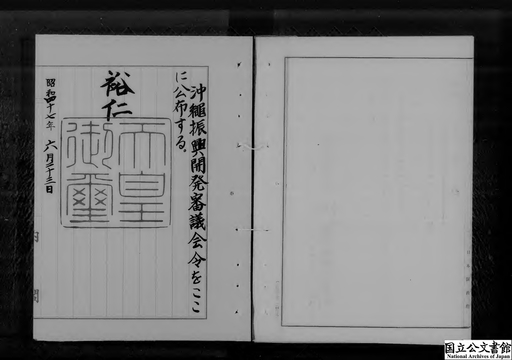 沖縄振興開発審議会令をここ
に公布する。
裕仁
天皇
御璽
昭和四十七年 六月二十三日
内閣
国立公文書館
National Archives of Japan